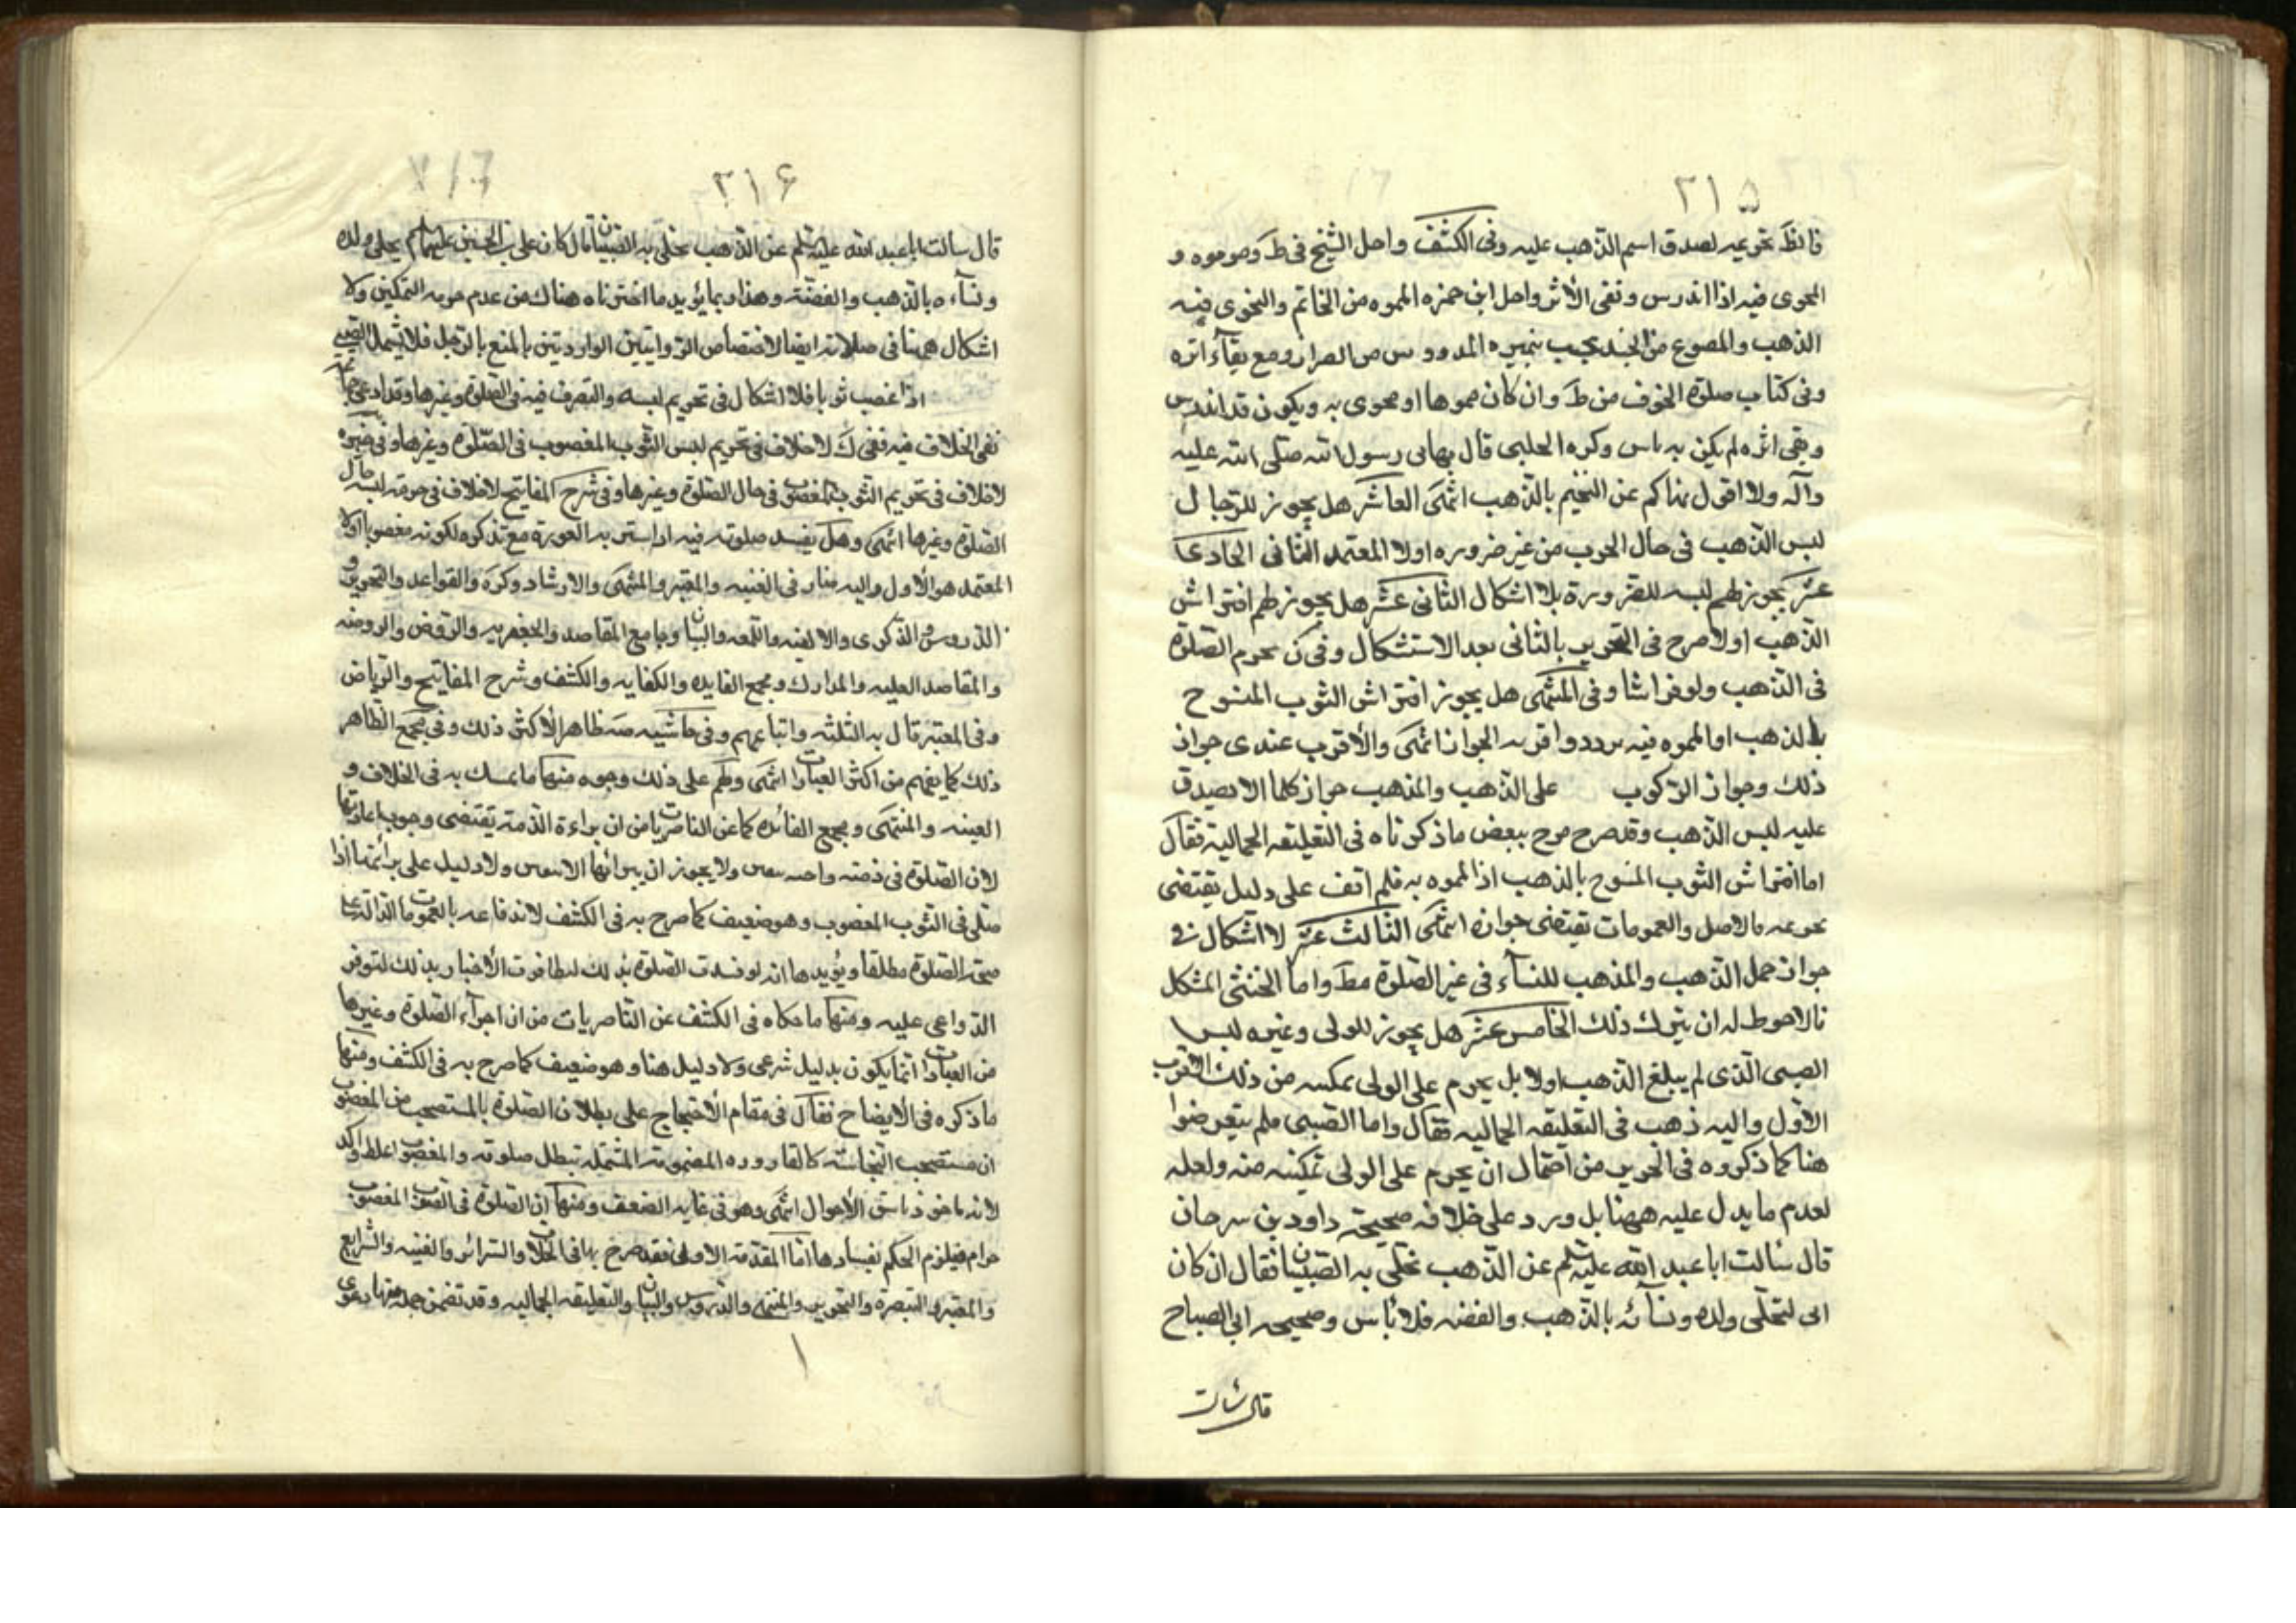 ٢١٥
فالظ تحريمه لصدق اسم الذهب عليه وفى الكشف واحل الشيخ فى ط وصوموه و
المجرى فيه اذا اندرس ونفى الأثر واحل ابن حمزه المموه من الخاتم والنجرى فيه
الذهب والمصوع من الجسد بحيث والمدروس من الطراز ومع بقآء اثره
وفى كتاب صلوة الخوف من ط وان كان مموها او مجرى به ويكون قد اندرس
وبقى اثره لم يكن به باس وكره الحلبى قال نهانى رسول الله صلى الله عليه
وآله ولا اقول نهاكم عن التختم بالذهب انتهى العاشر هل يجوز للرجال
لبس الذهب فى حال الحرب من غير ضروره اولا المعتمد الثانى الحادى
عشر يجوز لهم لبسه للضرورة بلا اشكال الثانى عشر هل يجوز لهم افتراش
الذهب اولا صرح فى التحرير بالثانى بعد الاستشكال وفى ن يحرم الصلوة
فى الذهب ولو فراشا وفى المنتهى هل يجوز افتراش الثوب المنسوج
بالذهب او المموه فيه تردد واقربه الجواز انتهى والأقرب عندى جواز
ذلك وجواز الركوب على الذهب والمذهب جواز كلما لا يصدق
عليه لبس الذهب وقد صرح ببعض ما ذكرناه فى التعليقه الجماليه فقال
اما افتراش الثوب المنسوج بالذهب اذ المموه به فلم اقف على دليل يقتضى
تحريمه فالاصل والعمومات تقتضى جوازه انتهى الثالث عشر لا اشكال فى
جواز حمل الذهب والمذهب للنسآء فى غير الصلوة مط واما الخنثى المشكل
فالاحوط له ان يترك ذلك الخامس عشر هل يجوز للولى وغيره لبس
الصبى الذى لم يبلغ الذهب اولا بل يحرم على الولى تمكينه من ذلك الاقرب
الاول واليه ذهب فى التعليقه الجماليه فقال واما الصبى فلم يتعرضوا
هنا كما ذكروه فى الحرير من احتمال ان يحرم على الولى تمكينه منه ولعله
لعدم ما يدل عليه ههنا بل ورد على خلافه صحيحة داود بن سرحان
قال سالت ابا عبد الله عليه السلم عن الذهب تحلى به الصبيان فقال ان كان
ابى لتحلى ولده ونسآئه بالذهب والفضه فلا باس وصحيحه ابى الصباح
قال سالت
٢١۶
قال سالت ابا عبد الله عليه السلم عن الذهب تحلى به الصبيان قال كان على بن الحسين عليهما السلم يحلى ولده
ونسآءه بالذهب والفضة وهذا مما يؤيد ما اخترناه هناك من عدم حرمه التمكين ولا
اشكال ههنا فى صلاته ايضا لاختصاص الروايتين الواردتين بالمنع بالرجل فلا يشمل الصبى
اذا غصب ثوبا فلا اشكال فى تحريم لبسه والتصرف فيه فى الصلوة وغيرها وقد ادعى جماعة
نفى الخلاف فيه ففى ك لا خلاف فى تحريم لبس الثوب المغصوب فى الصلوة وغيرها وفى خيره
لا خلاف فى تحريم الثوب المغصوب فى حال الصلوة وغيرها وفى شرح المفاتيح لا خلاف فى حرمة لبسه حال
الصلوة وغيرها انتهى وهل يفسد صلوته فيه اذا ستر به العورة مع تذكره لكونه مغصوبا اولا
المعتمد هو الأول واليه صار فى الغنيه والمعتبر والمنتهى والارشاد وكره والقواعد والتحرير و
الدروس والذكرى والالفيه واللمعه والبيان وجامع المقاصد والجعفريه والروض والروضه
والمقاصد العليه والمدارك ومجمع الفايده والكفايه والكشف وشرح المفاتيح والرياض
وفى المعتبر قال به الثلثه واتباعهم وفى حاشيه ظاهر الأكثر ذلك وفى مجمع الظاهر
ذلك كما يفهم من اكثر العبارات انتهى ولهم على ذلك وجوه منها ما تمسك به فى الخلاف و
الغنيه والمنتهى ومجمع الفائده كما عن الناصريات من ان براءة الذمة يقتضى وجوب اعادتها
لان الصلوة فى ذمته واجبه بيقين ولا يجوز ان يبرائها الا بيقين ولا دليل على برائتها اذا
صلى فى الثوب المغصوب وهو ضعيف كما صرح به فى الكشف لاندفاعه بالعمومات الدالة على
صحة الصلوة مطلقا ويؤيدها انه لو فسدت الصلوة بذلك لتظافرت الأخبار بذلك لتوفر
الدواعى عليه ومنها ما حكاه فى الكشف عن الناصريات من ان اجزآء الصلوة وغيرها
من العبادات انما يكون بدليل شرعى ولا دليل هنا وهو ضعيف كما صرح به فى الكشف ومنها
ما ذكره فى الايضاح فقال فى مقام الأحتجاج على بطلان الصلوة بالمستصحب من المغصوب
ان مستصحب النجاسة كالقاروره المضمومة المشتملة تبطل صلوته والمغصوب اغلظ واكد
لانه ماخوذ باشق الأحوال انتهى وهو فى غايه الضعف ومنها ان الصلوة فى الثوب المغصوب
حرام فيلزم الحكم بفسادها اما المقدمة الاولى فقد صرح بها فى الخلاف والسرائر والغنيه والشرايع
والمعتبر والتبصرة والتحرير والمنتهى والدروس والبيان والتعليقه الجماليه وقد تضمن جملة منها دعوى